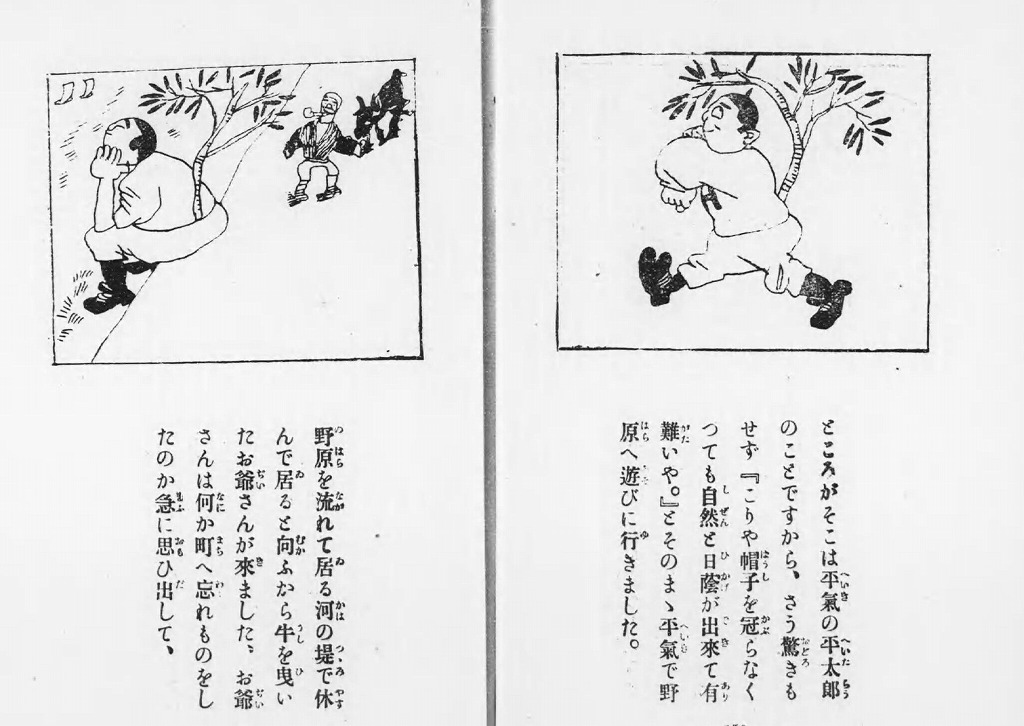 ところがそこは平氣の平太郎
のことですから、さう驚きも
せず『こりや帽子を冠らなく
つても自然と日蔭が出來て有
難いや。』とそのまゝ平氣で野
原へ遊びに行きました。
野原を流れて居る河の堤で休
んで居ると向ふから牛を曳い
たお爺さんが來ました、お爺
さんは何か町へ忘れものをし
たのか急に思ひ出して、